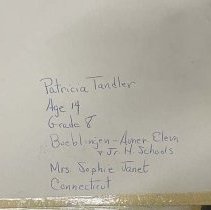 Patricia Tandler
Age 14
Grade 8
Boeblingen - Amer Elem
+ Jr. H. Schools
Mrs. Sophie Janet
Connecticut